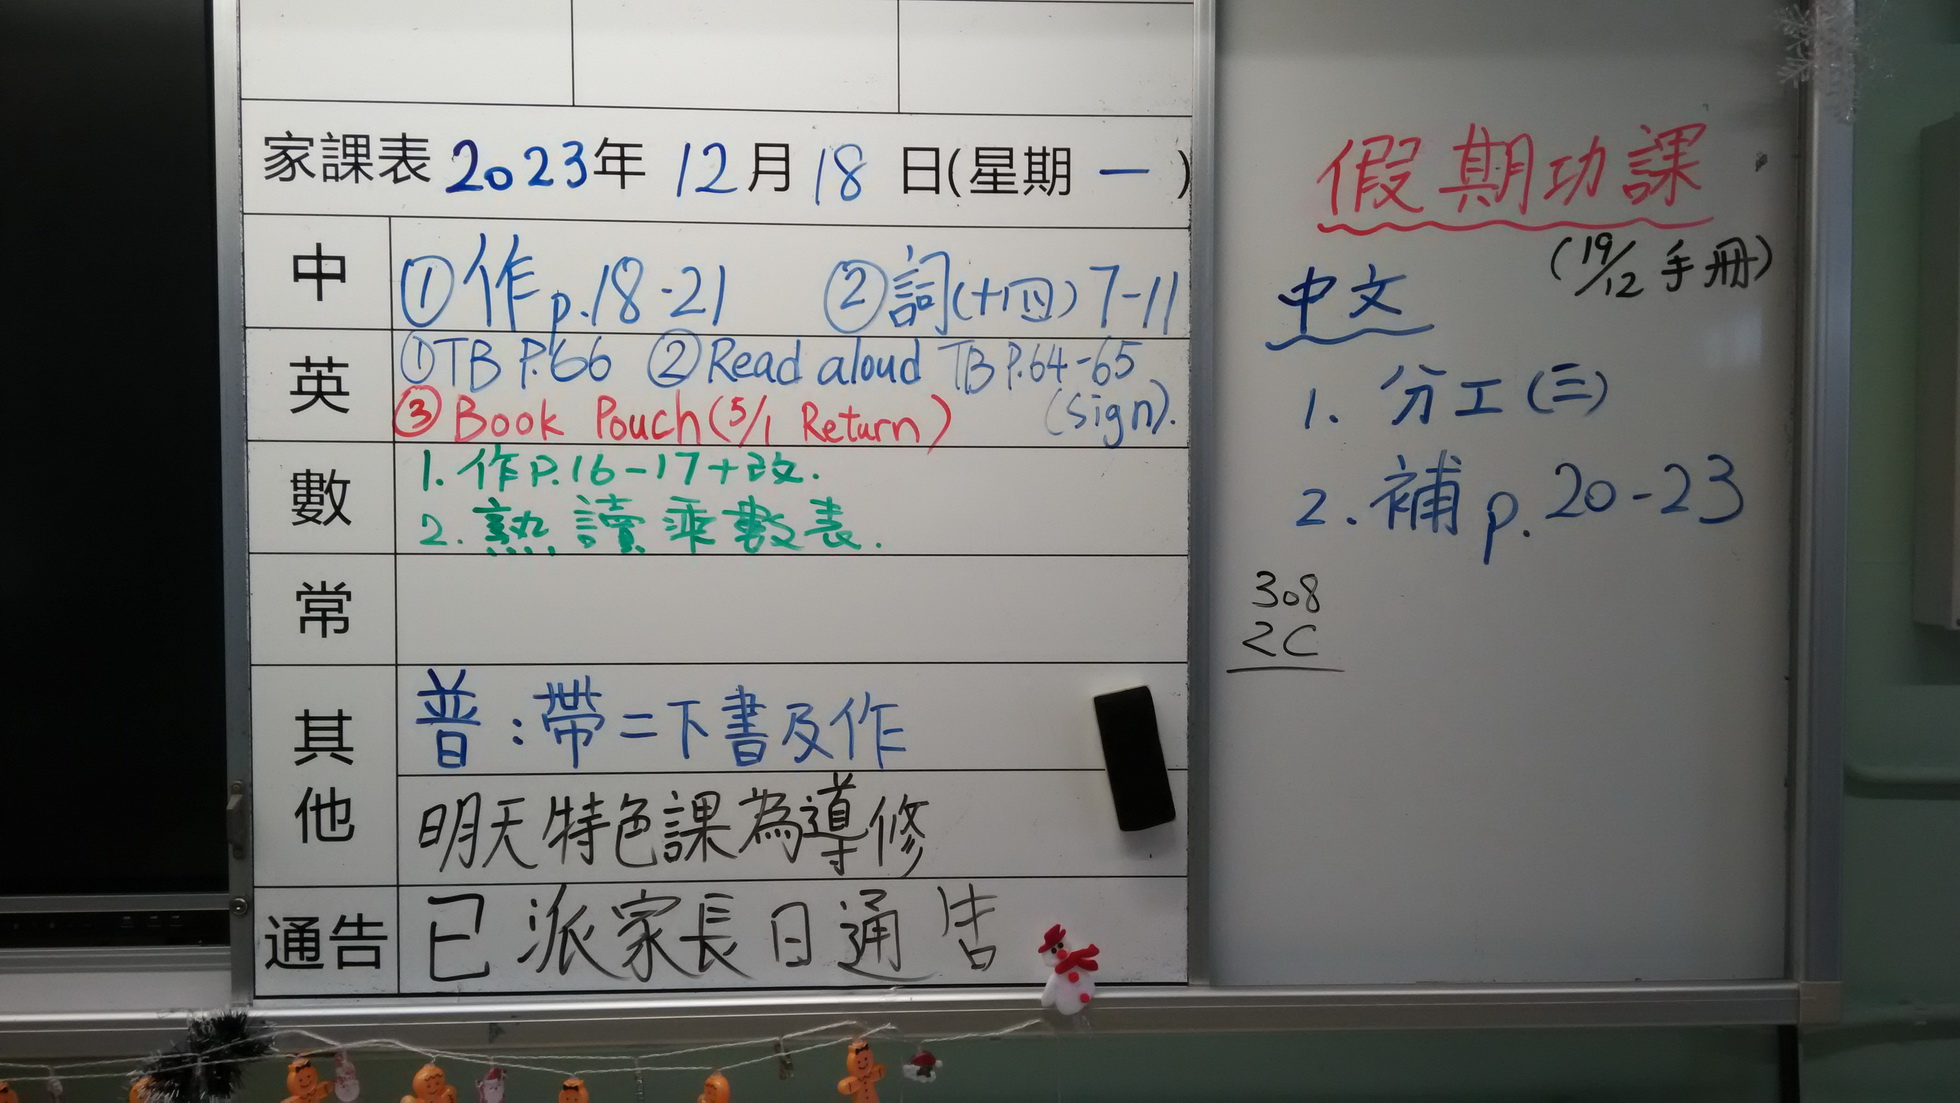 家課表 2023年 12月 18日(星期 一 )
中 ①作p.18-21 ②詞(十四)7-11
英 ①TB P.66 ②Read aloud TB P.64-65
③Book Pouch(5/1 Return) (sign).
數 1.作P.16-17+改.
2.熟讀乘數表.
常
其他 普:帶二下書及作
明天特色課為導修
通告 已派家長日通告
假期功課
(19/12手冊)
中文
1. 分工(三)
2. 補p.20-23
308
2C